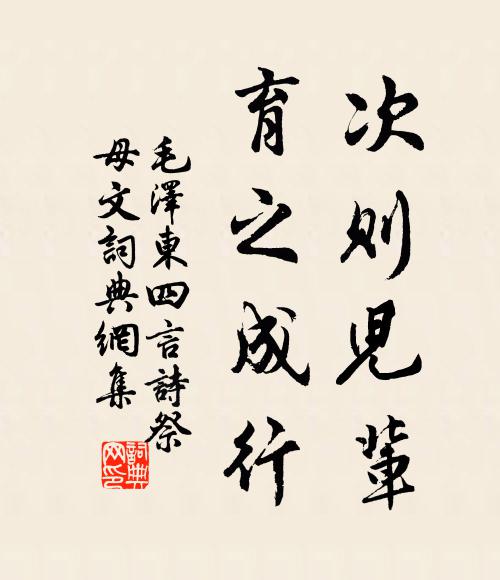 次則兒輩
育之成行
毛澤東四言詩祭
母文詞典網集
詞典
网印